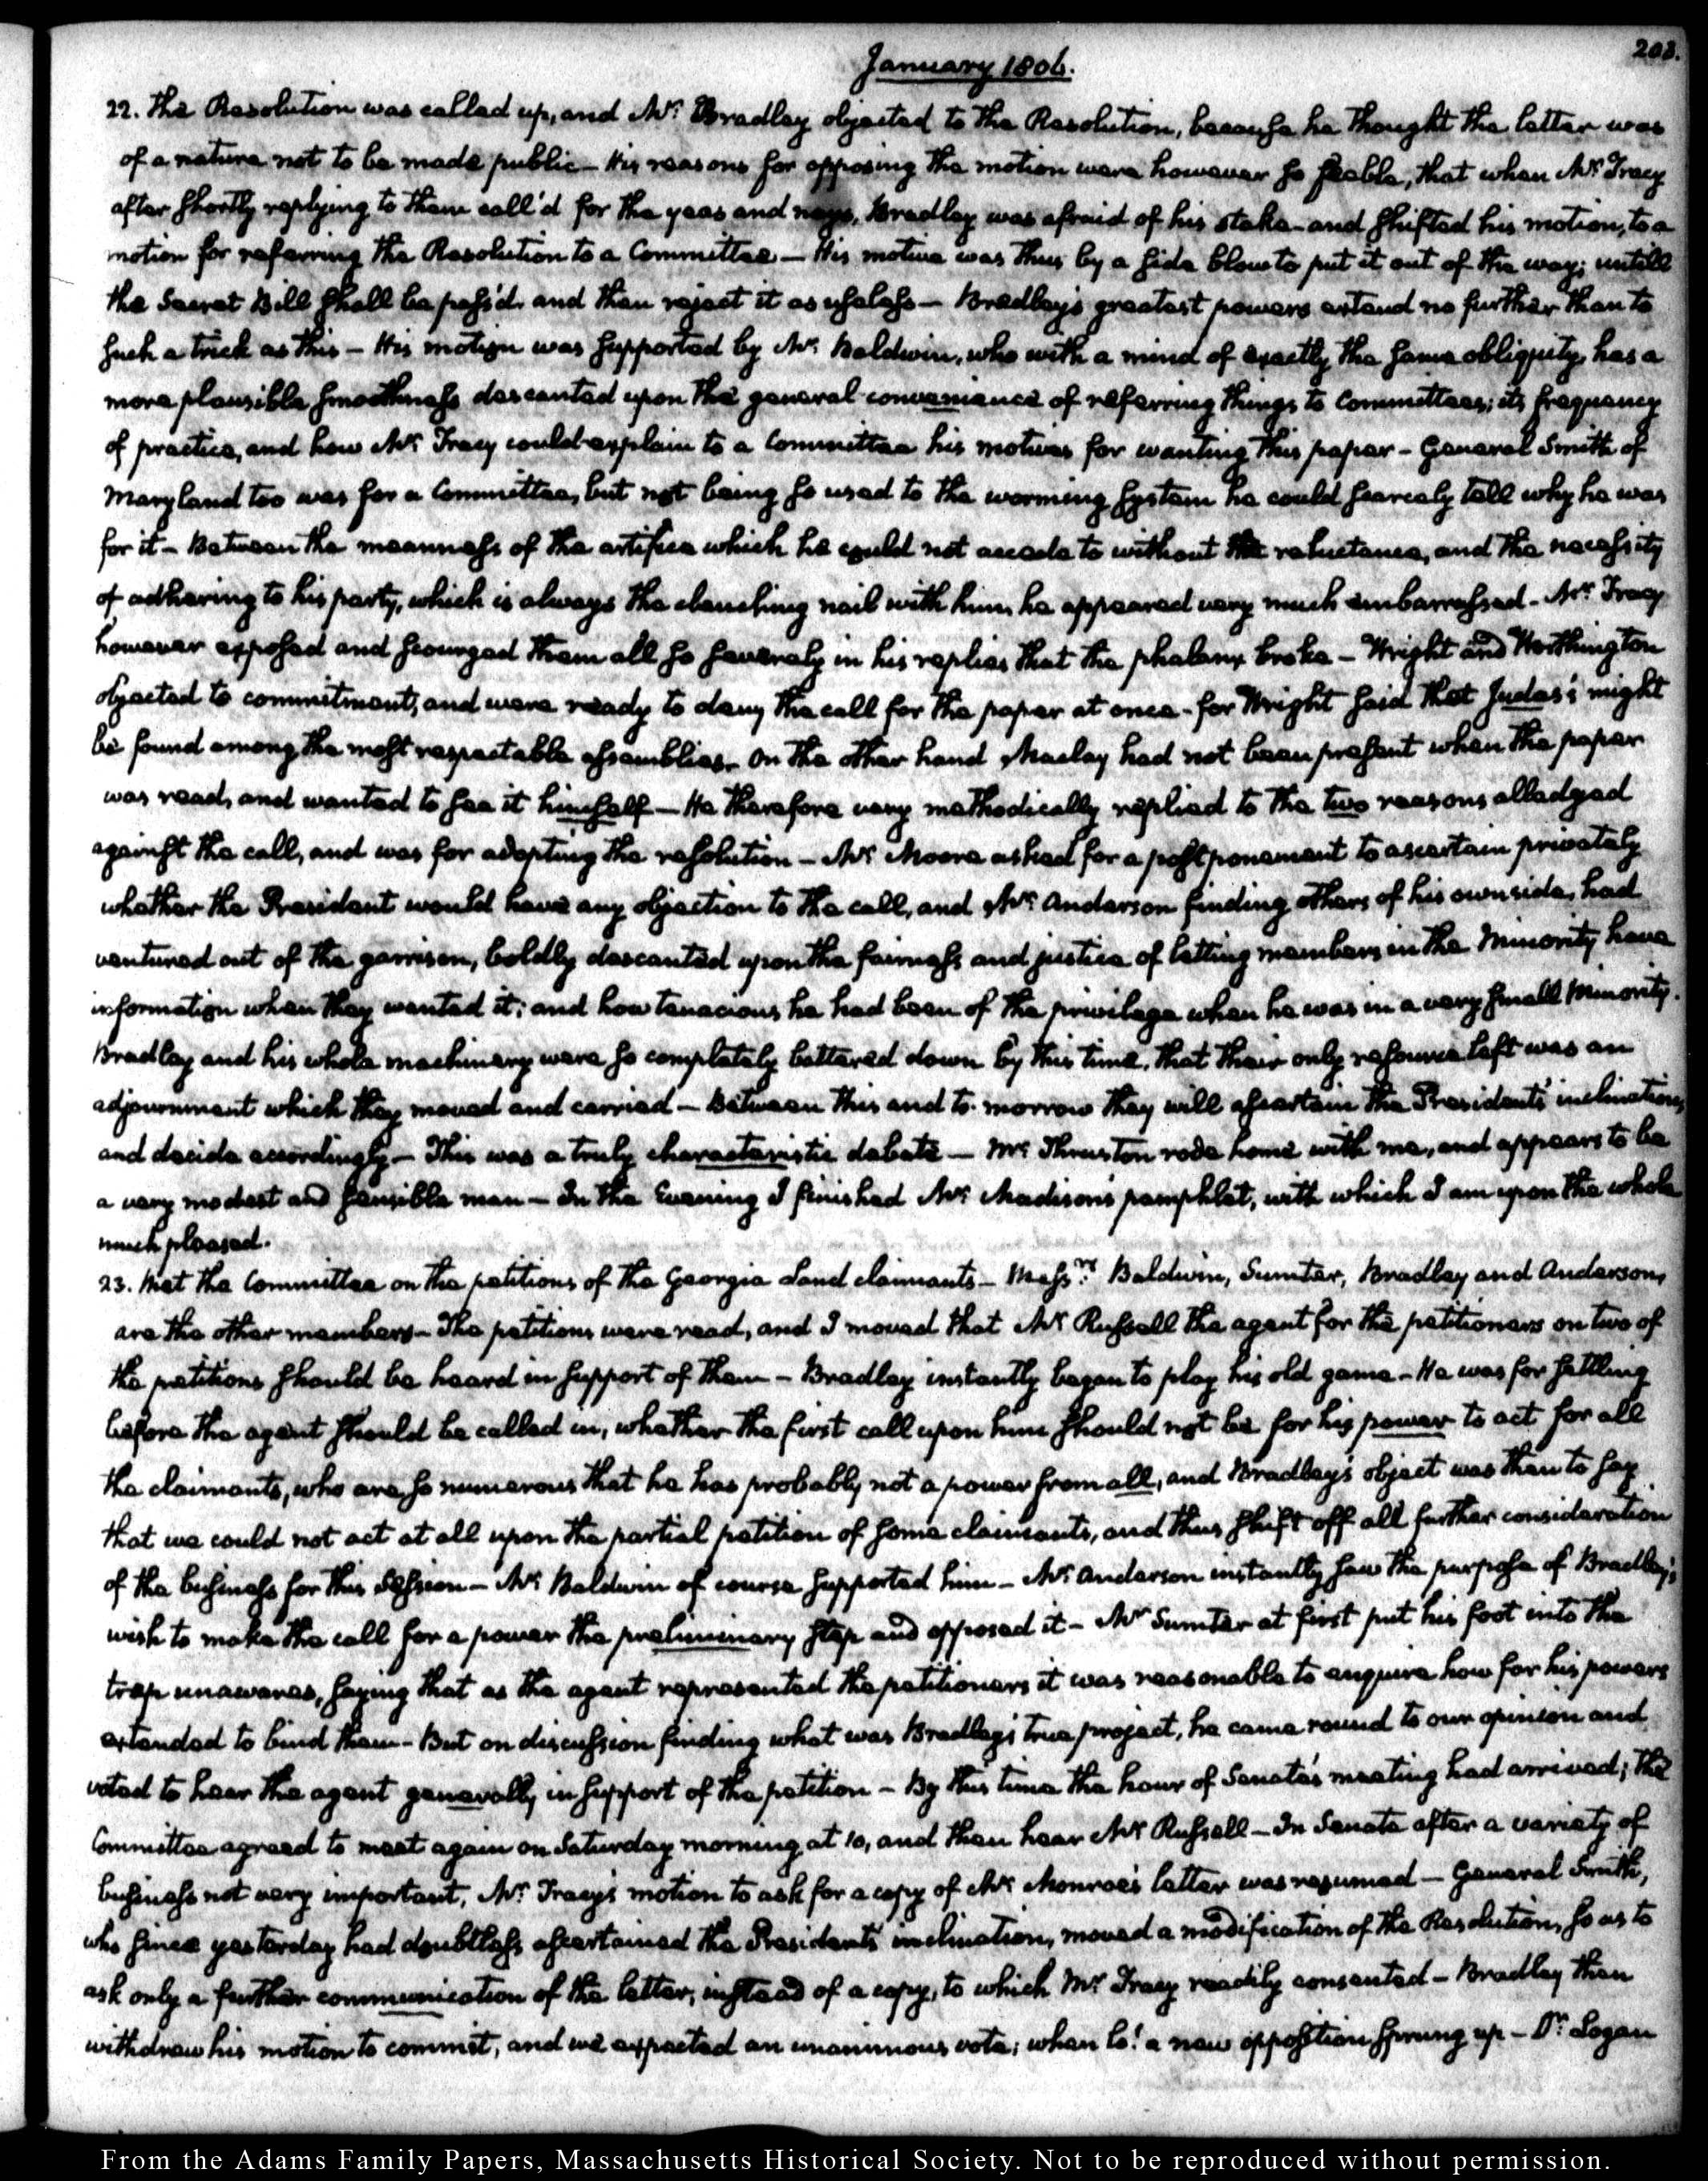 203.
January 1806.
22. The Resolution was called up, and Mr. Bradley objected to the Resolution, because he thought the letter was
of a nature not to be made public — His reasons for opposing the motion were however so feeble, that when Mr. Tracy
after shortly replying to them call'd for the yeas and nays, Bradley was afraid of his stake — and shifted his motion, to a
motion for referring the Resolution to a Committee — His motive was thus by a side blow to put it out of the way; untill
the Secret Bill shall be pass'd, and then reject it as useless — Bradley's greatest powers extend no further than to
such a trick as this — His motion was supported by Mr. Baldwin, who with a mind of exactly the same obliquity, has a
more plausible smoothness descanted upon the general convenience of referring things to Committees; its frequency
of practice, and how Mr. Tracy could explain to a Committee his motives for wanting this paper — General Smith of
Maryland too was for a Committee, but not being so used to the worming system he could scarcely tell why he was
for it — Between the meanness of the artifice which he could not accede to without reluctance, and the necessity
of adhering to his party, which is always the clenching nail with him, he appeared very much embarrassed — Mr. Tracy
however exposed and scourged them all so severely in his replies that the phalanx broke — Wright and Worthington
objected to commitment, and were ready to deny the call for the paper at once — for Wright said that Judas's might
be found among the most respectable assemblies. On the other hand Maclay had not been present when the paper
was read, and wanted to see it himself — He therefore very methodically replied to the two reasons alledged
against the call, and was for adopting the resolution — Mr. Moore asked for a postponement to ascertain privately
whether the President would have any objection to the call, and Mr. Anderson finding others of his own side, had
ventured out of the garrison, boldly descanted upon the fairness and justice of letting members in the Minority have
information when they wanted it; and how tenacious he had been of the privilege when he was in a very small Minority.
Bradley and his whole machinery were so completely battered down by this time, that their only resource left was an
adjournment which they moved and carried — Between this and to-morrow they will ascertain the President's inclination,
and decide accordingly — This was a truly characteristic debate — Mr. Thruston rode home with me, and appears to be
a very modest and sensible man — In the Evening I finished Mr. Madison's pamphlet, with which I am upon the whole
much pleased.
23. Met the Committee on the petitions of the Georgia Land claimants — Messrs. Baldwin, Sumter, Bradley and Anderson,
are the other members — The petitions were read, and I moved that Mr. Russell the agent for the petitioners on two of
the petitions should be heard in support of them — Bradley instantly began to play his old game — He was for settling
before the agent should be called in, whether the first call upon him should not be for his power to act for all
the claimants, who are so numerous that he has probably not a power from all, and Bradley's object was then to say
that we could not act at all upon the partial petition of some claimants, and thus shift off all further consideration
of the business for this Session — Mr. Baldwin of course supported him — Mr. Anderson instantly saw the purpose of Bradley's
wish to make the call for a power the preliminary step and opposed it — Mr. Sumter at first put his foot into the
trap unawares, saying that as the agent represented the petitioners it was reasonable to enquire how far his powers
extended to bind them — But on discussion finding what was Bradley's true project, he came round to our opinion and
voted to hear the agent generally, in support of the petition — By this time the hour of Senate's meeting had arrived; the
Committee agreed to meet again on Saturday morning at 10, and then hear Mr. Russell — In Senate after a variety of
business not very important, Mr. Tracy's motion to ask for a copy of Mr. Monroe's letter was resumed — General Smith,
who since yesterday had doubtless ascertained the President's inclination, moved a modification of the Resolution, so as to
ask only a further communication of the letter, instead of a copy, to which Mr. Tracy readily consented — Bradley then
withdrew his motion to commit, and we expected an unanimous vote; when lo! a new opposition sprung up — Dr. Logan
From the Adams Family Papers, Massachusetts Historical Society. Not to be reproduced without permission.